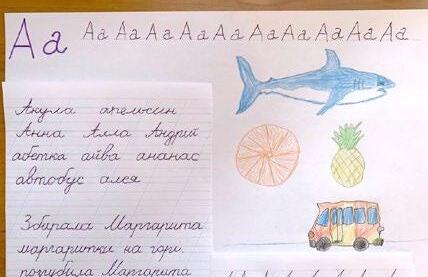 Аа Аа Аа Аа Аа Аа Аа Аа Аа Аа Аа
Акула апельсин
Анна Алла Андрій
абетка айва ананас
автобус алея
Збирала Маргарита
маргаритки на горі.
погубила Маргарита